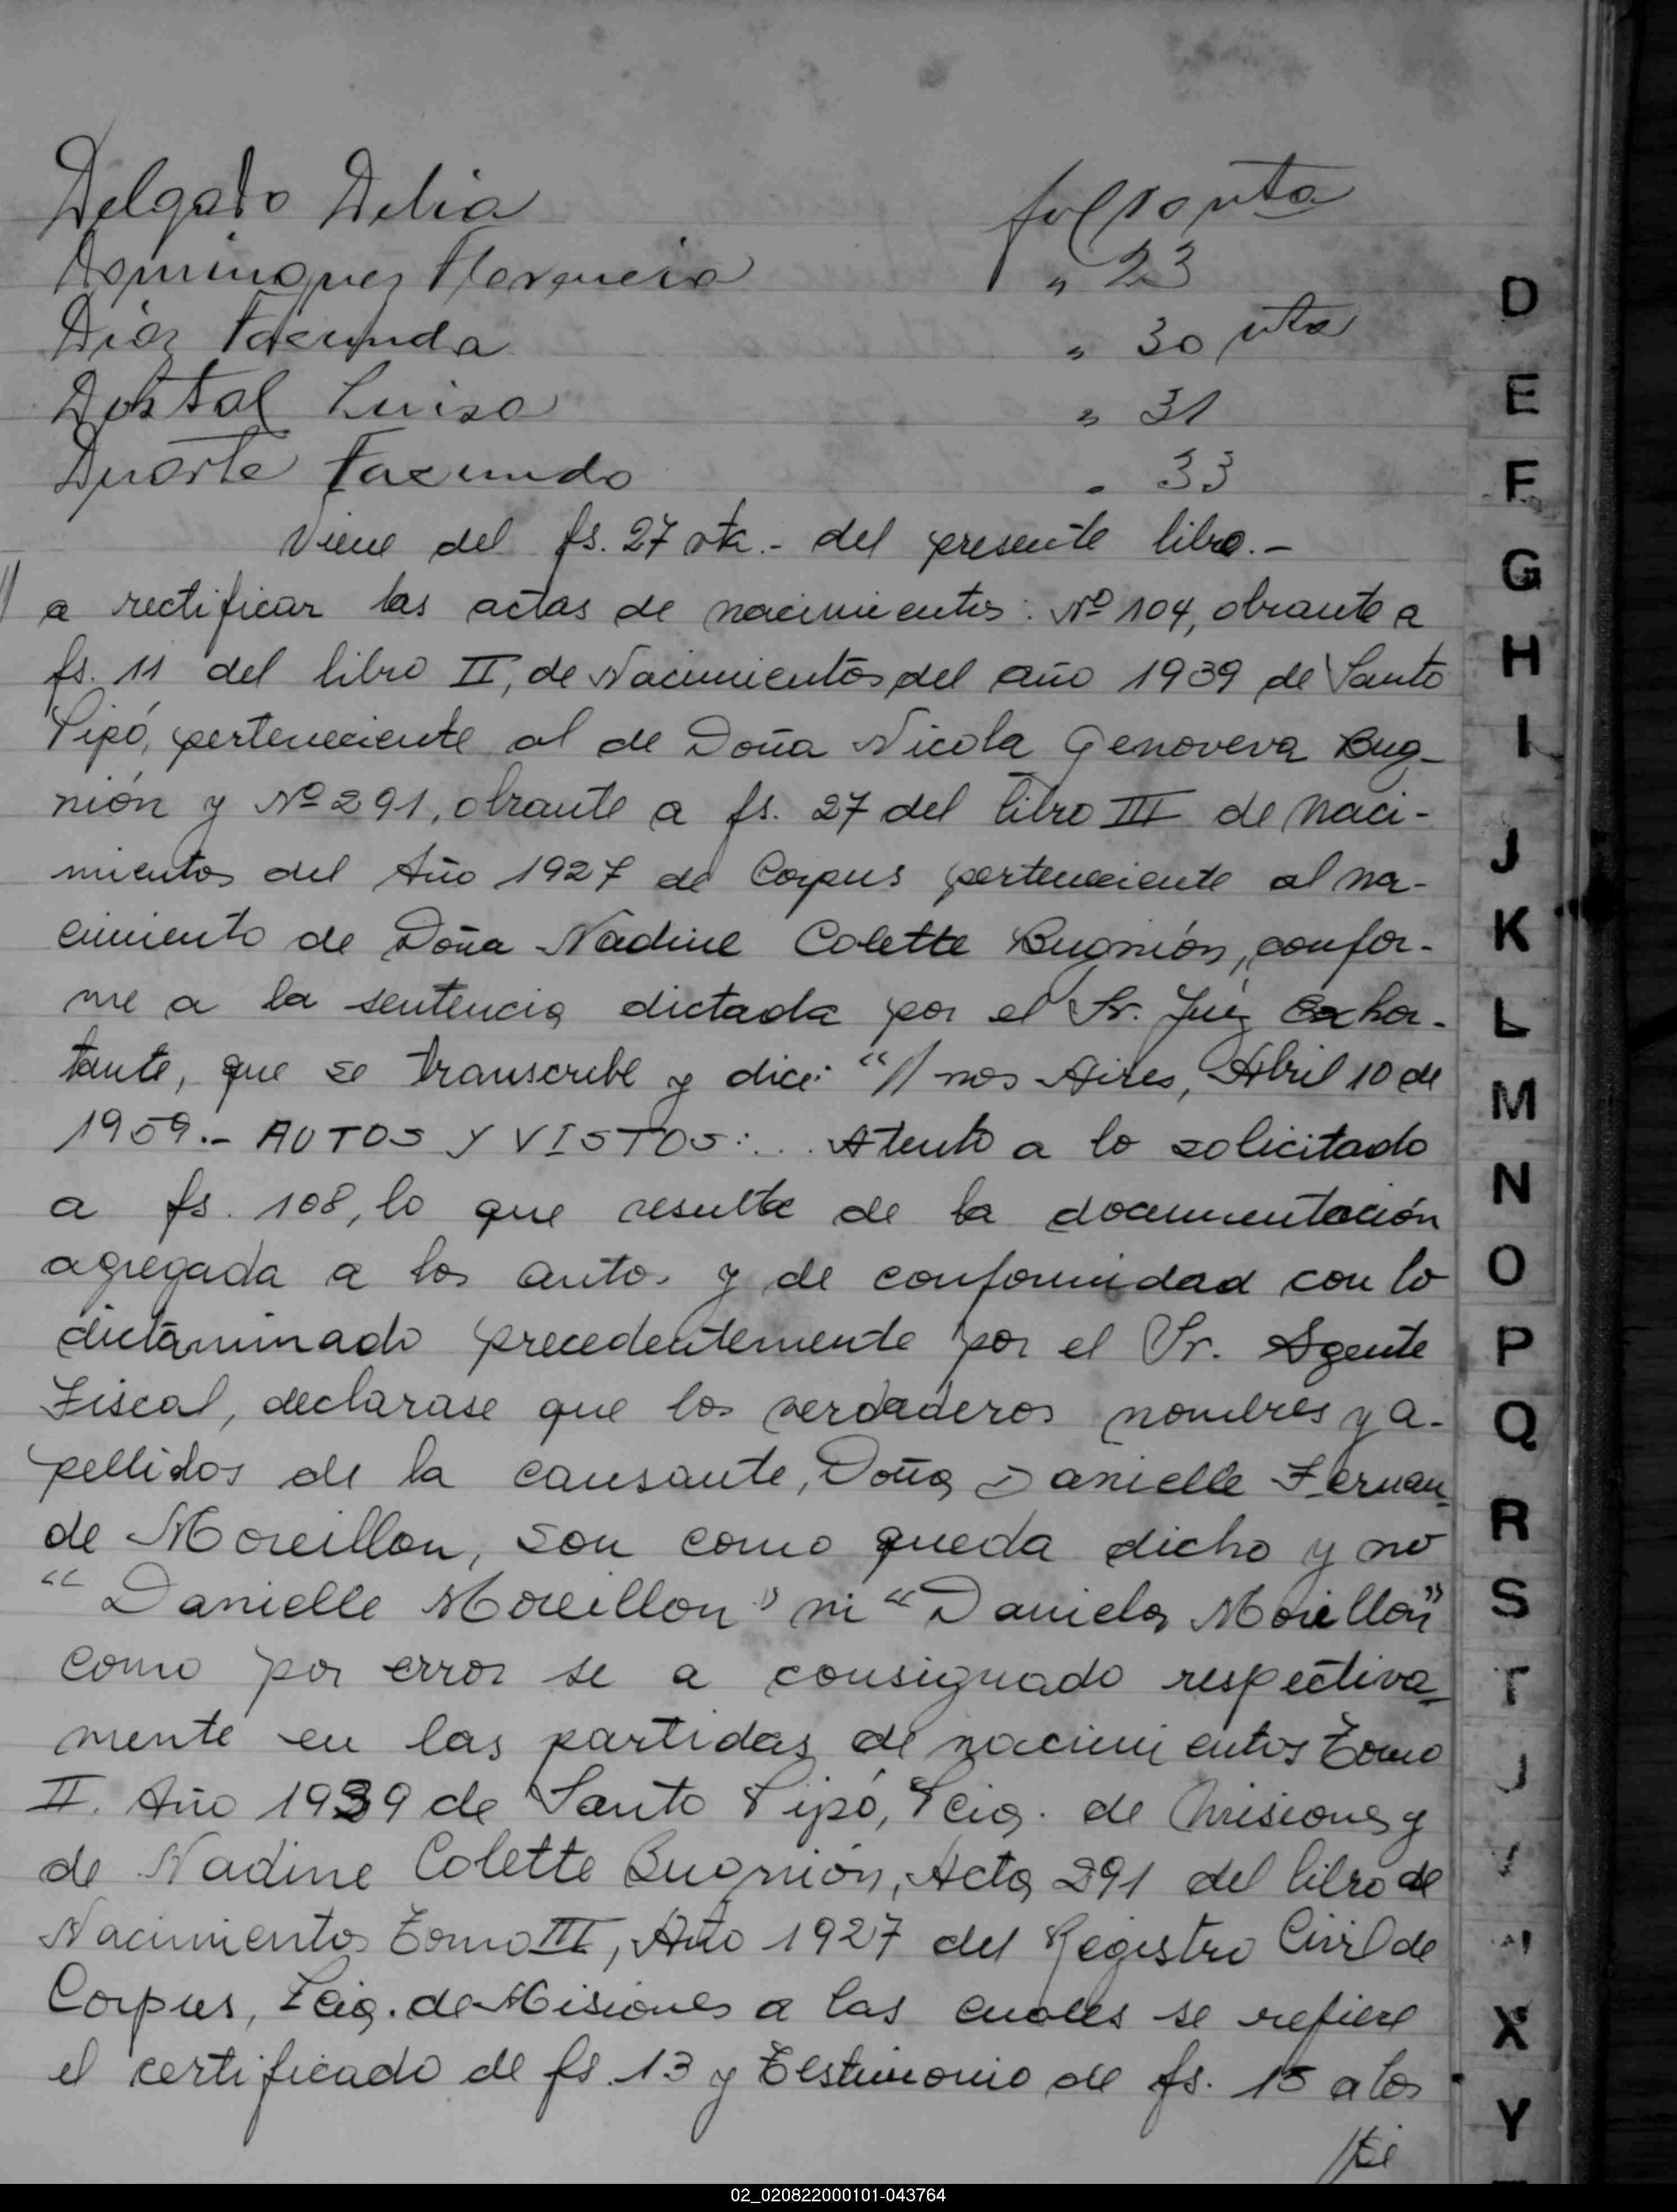 Delgado Delia fol 10 vta
Dominguez Florencia " 23
Diaz Facunda " 30 vta
Dostal Luisa " 31
Duarte Facundo " 33
Viene del fs. 27 vta.- del presente libro.-
// a rectificar las actas de nacimientos: Nº 104, obrante a
fs. 11 del libro II, de Nacimientos del año 1939 de Santo
Pipó, perteneciente al de Doña Nicola Genoveva Bug-
nión y Nº 291, obrante a fs. 27 del libro III de Naci-
mientos del Año 1927 de Corpus perteneciente al na-
cimiento de Doña Nadine Colette Bugnión, confor-
me a la sentencia dictada por el Sr. Juez Exhor-
tante, que se transcribe y dice: "// nos Aires, Abril 10 de
1959.- AUTOS Y VISTOS:... Atento a lo solicitado
a fs. 108, lo que resulta de la documentación
agregada a los autos y de conformidad con lo
dictaminado precedentemente por el Sr. Agente
Fiscal, declarase que los verdaderos nombres y a-
pellidos de la causante, Doña Danielle Fernan-
de Moreillon, son como queda dicho y no
"Danielle Moreillon" ni "Daniela Moiellon"
como por error se a consignado respectiva-
mente en las partidas de nacimientos Tomo
II. Año 1939 de Santo Pipó, Pcia. de Misiones y
de Nadine Colette Bugnión, Acta 291 del libro de
Nacimientos Tomo III, Año 1927 del Registro Civil de
Corpus, Pcia. de Misiones a las cuales se refiere
el certificado de fs. 13 y Testimonio de fs. 15 a los
D
E
F
G
H
I
J
K
L
M
N
O
P
Q
R
S
T
X
Y
02_020822000101-043764